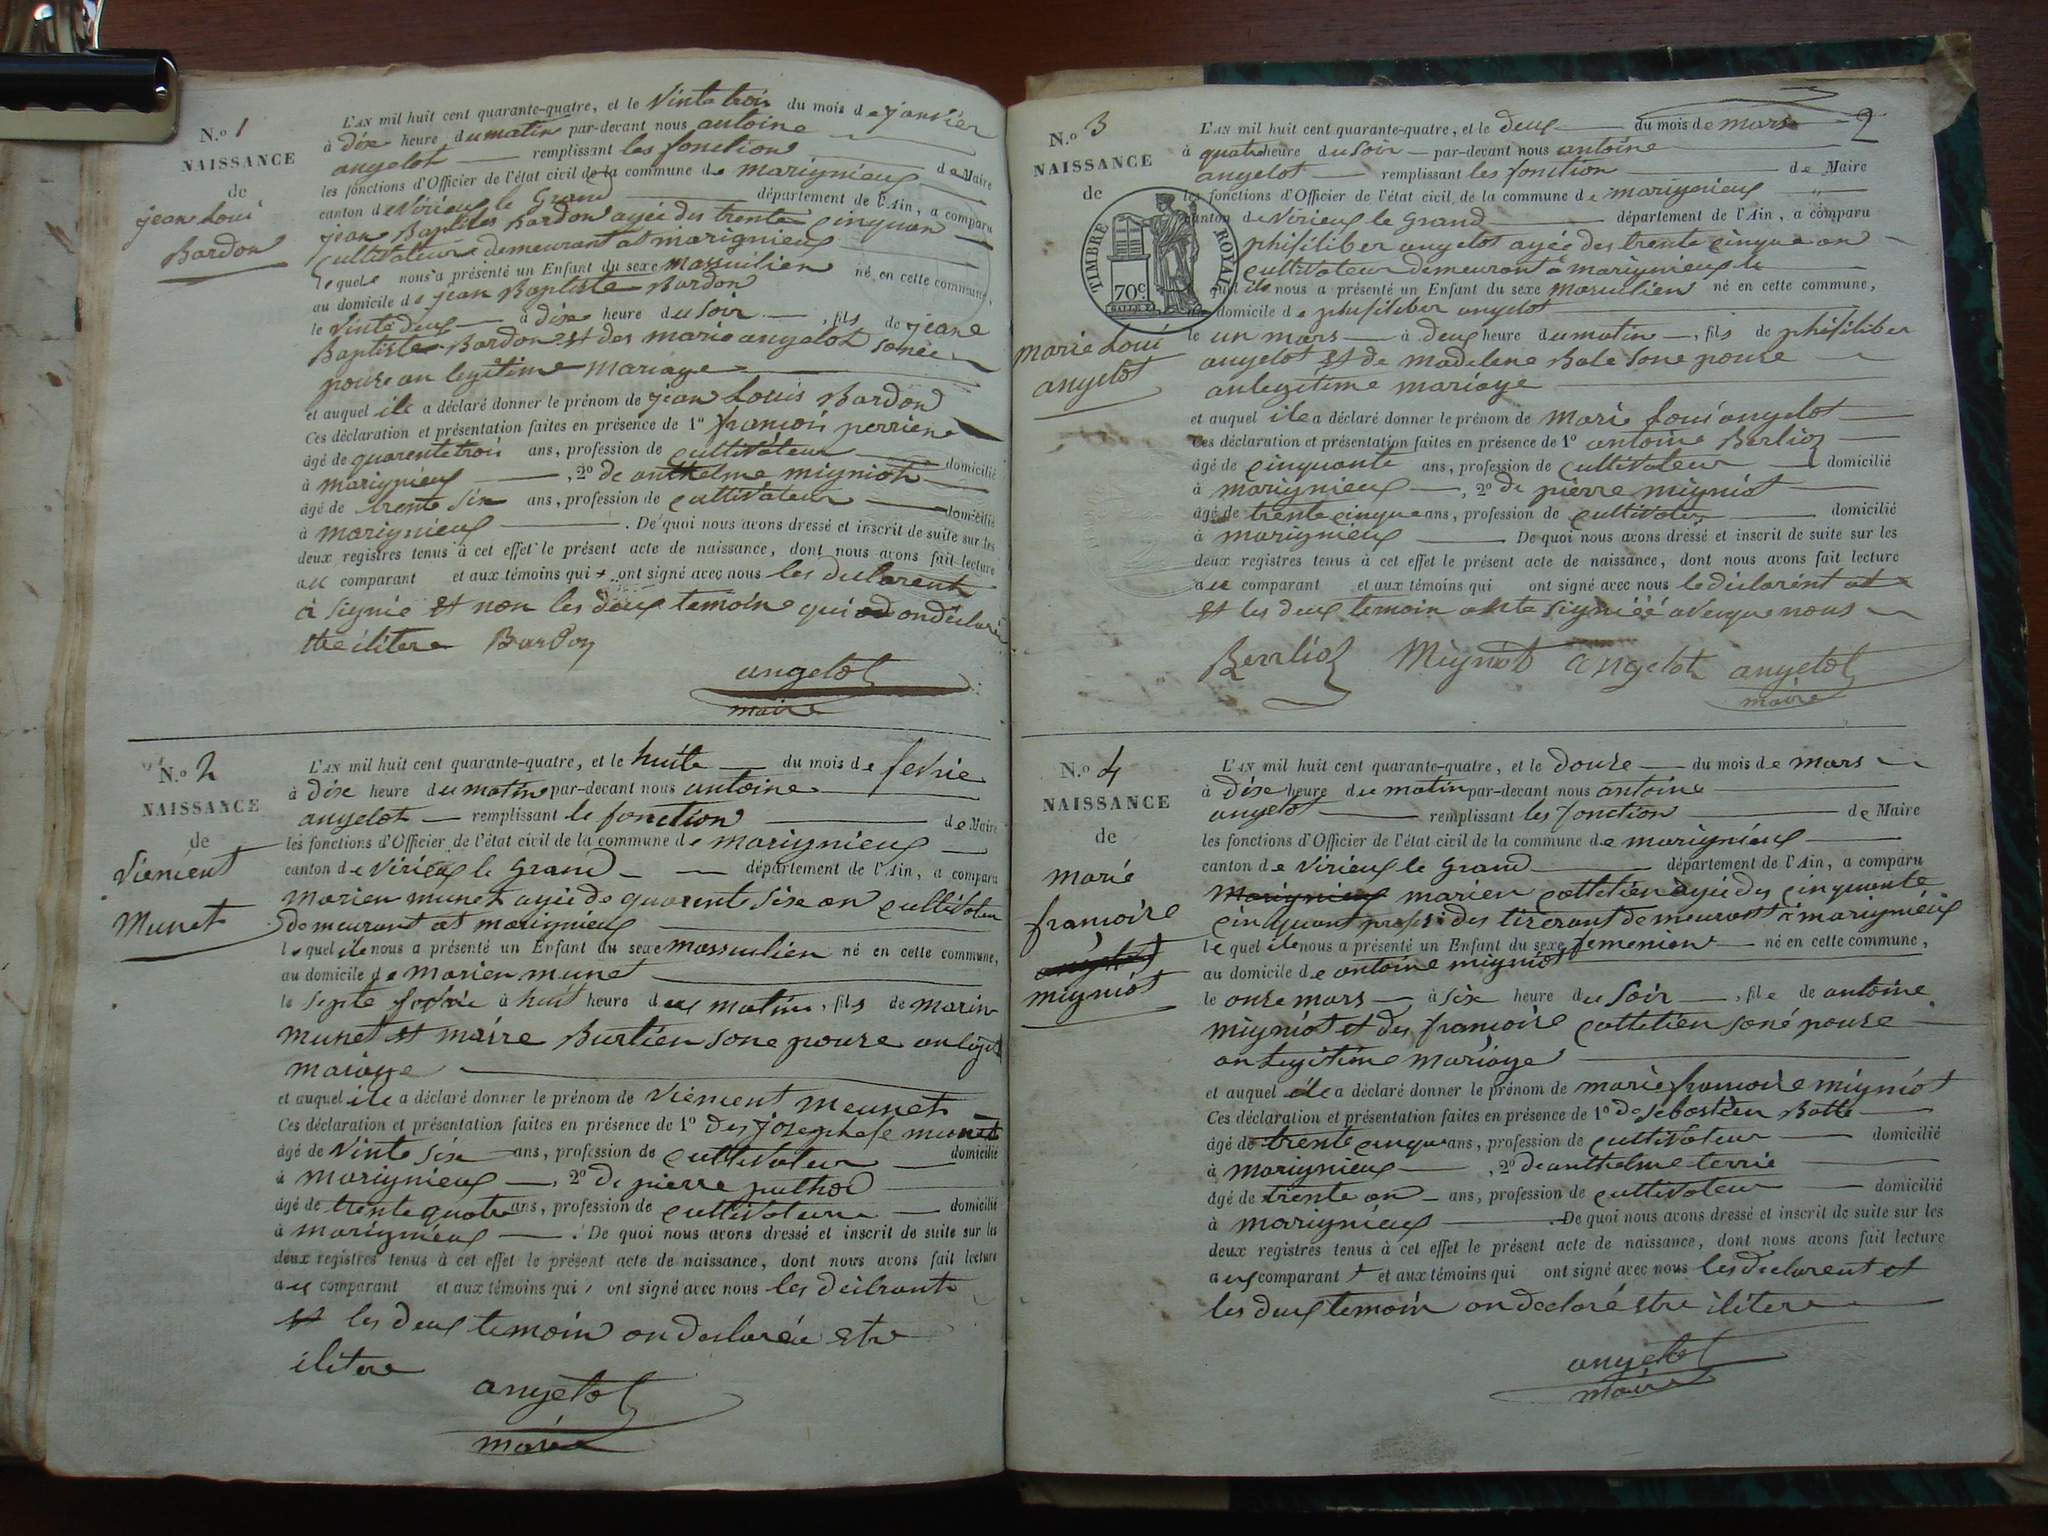 N.o 1
NAISSANCE
de
jean Loui
Bardon
L'AN mil huit cent quarante-quatre, et le vinte trois du mois de janvier
à dixe heure du matin par-devant nous antoine
angelot remplissant les fonction de Maire
les fonctions d'Officier de l'état civil de la commune de marignieux
canton de virieux le Grand département de l'Ain, a comparu
jean Baptiste Bardon agée des trente cinquan
Cultivateur demeurant at marignieux
lequel nous a présenté un Enfant du sexe massculien né en cette commune,
au domicile de jean Baptiste Bardon
le vinte deux à dixe heure du soir, fils de jeane
Baptiste Bardon et des marie angelot sonée
pouse an legitime mariage
et auquel ile a déclaré donner le prénom de jean Louis Bardon
Ces déclaration et présentation faites en présence de 1º françois perriene
âgé de quarente trois ans, profession de cultivateur domicilié
à marignieux, 2º de anthelme migniot
âgé de trente six ans, profession de cultivateur domicilié
à marignieux. De quoi nous avons dressé et inscrit de suite sur les
deux registres tenus à cet effet le présent acte de naissance, dont nous avons fait lecture
au comparant et aux témoins qui ont signé avec nous les declarent
à signie et non les deux temoine qui on déclaré
ttre ilitere Bardon
angelot
maire
N.o 2
NAISSANCE
de
vienient
Munet
L'AN mil huit cent quarante-quatre, et le huite du mois de fevrie
à dixe heure du matin par-devant nous antoine
angelot remplissant le fonction de Maire
les fonctions d'Officier de l'état civil de la commune de marignieux
canton de virieux le Grand département de l'Ain, a comparu
marien munet agée de quarent sixe an cultivateur
demeurant at marignieux
lequel ile nous a présenté un Enfant du sexe massculien né en cette commune,
au domicile de marien munet
le septe fevrie à huit heure du matin, fils de marin
munet et maire Burtien sone pouse an legit
mariage
et auquel ile a déclaré donner le prénom de vienient meunet
Ces déclaration et présentation faites en présence de 1º des josephe munet
âgé de vinte six ans, profession de cultivateur domicilié
à marignieux, 2º de pierre puthod
âgé de trente quatre ans, profession de cultivateure domicilié
à marignieux. De quoi nous avons dressé et inscrit de suite sur les
deux registres tenus à cet effet le présent acte de naissance, dont nous avons fait lecture
au comparant et aux témoins qui ont signé avec nous les deilrant
et les deux temoin on declarée etre
ilitere
angelot
maire
2
N.o 3
NAISSANCE
de
TIMBRE ROYAL
70c
marie Loui
angelot
L'AN mil huit cent quarante-quatre, et le deux du mois de mars
à quatre heure du soir par-devant nous antoine
angelot remplissant les fonction de Maire
les fonctions d'Officier de l'état civil de la commune de marignieux
canton de virieux le Grand département de l'Ain, a comparu
phisiliber angelot agée des trente cinque an
cultivateur demeurant à marignieux le
quel ile nous a présenté un Enfant du sexe masculien né en cette commune,
au domicile de phisiliber angelot
le un mars à deux heure du matin, fils de phisiliber
angelot et de madelene Bale sone pouse
an legitime mariage
et auquel ile a déclaré donner le prénom de marie Loui angelot
Ces déclaration et présentation faites en présence de 1º antoine Berlioz
âgé de cinquante ans, profession de cultivateur domicilié
à marignieux, 2º de pierre migniot
âgé de trente cinque ans, profession de cultivater domicilié
à marignieux De quoi nous avons dressé et inscrit de suite sur les
deux registres tenus à cet effet le présent acte de naissance, dont nous avons fait lecture
au comparant et aux témoins qui ont signé avec nous le declarent at
et les deux temoin signiéé avecque nous
Berrlioz Mignot angelot angelot
maire
N.o 4
NAISSANCE
de
marie
françoise
migniot
L'AN mil huit cent quarante-quatre, et le douse du mois de mars
à dixe heure du matin par-devant nous antoine
angelot remplissant les fonction de Maire
les fonctions d'Officier de l'état civil de la commune de marignieux
canton de virieux le Grand département de l'Ain, a comparu
marignieux marien cattetien agée des cinquante
cinquant profesi des tiserant demeurant à marignieux
le quel ile nous a présenté un Enfant du sexe femenien né en cette commune,
au domicile de antoine migniot
le onse mars à sixe heure du soir, file de antoine
migniot et des françoise cattetien soné pouse
an legitime mariage
et auquel ile a déclaré donner le prénom de marie françoise migniot
Ces déclaration et présentation faites en présence de 1º de sebastien Batte
âgé de trente cinque ans, profession de cultivateur domicilié
à marignieux, 2º de anthelme terrie
âgé de trente an ans, profession de cultivateur domicilié
à marignieux. De quoi nous avons dressé et inscrit de suite sur les
deux registres tenus à cet effet le présent acte de naissance, dont nous avons fait lecture
aux comparant et aux témoins qui ont signé avec nous les declarent et
les deux temoin on declaré etre ilitere
angelot
maire